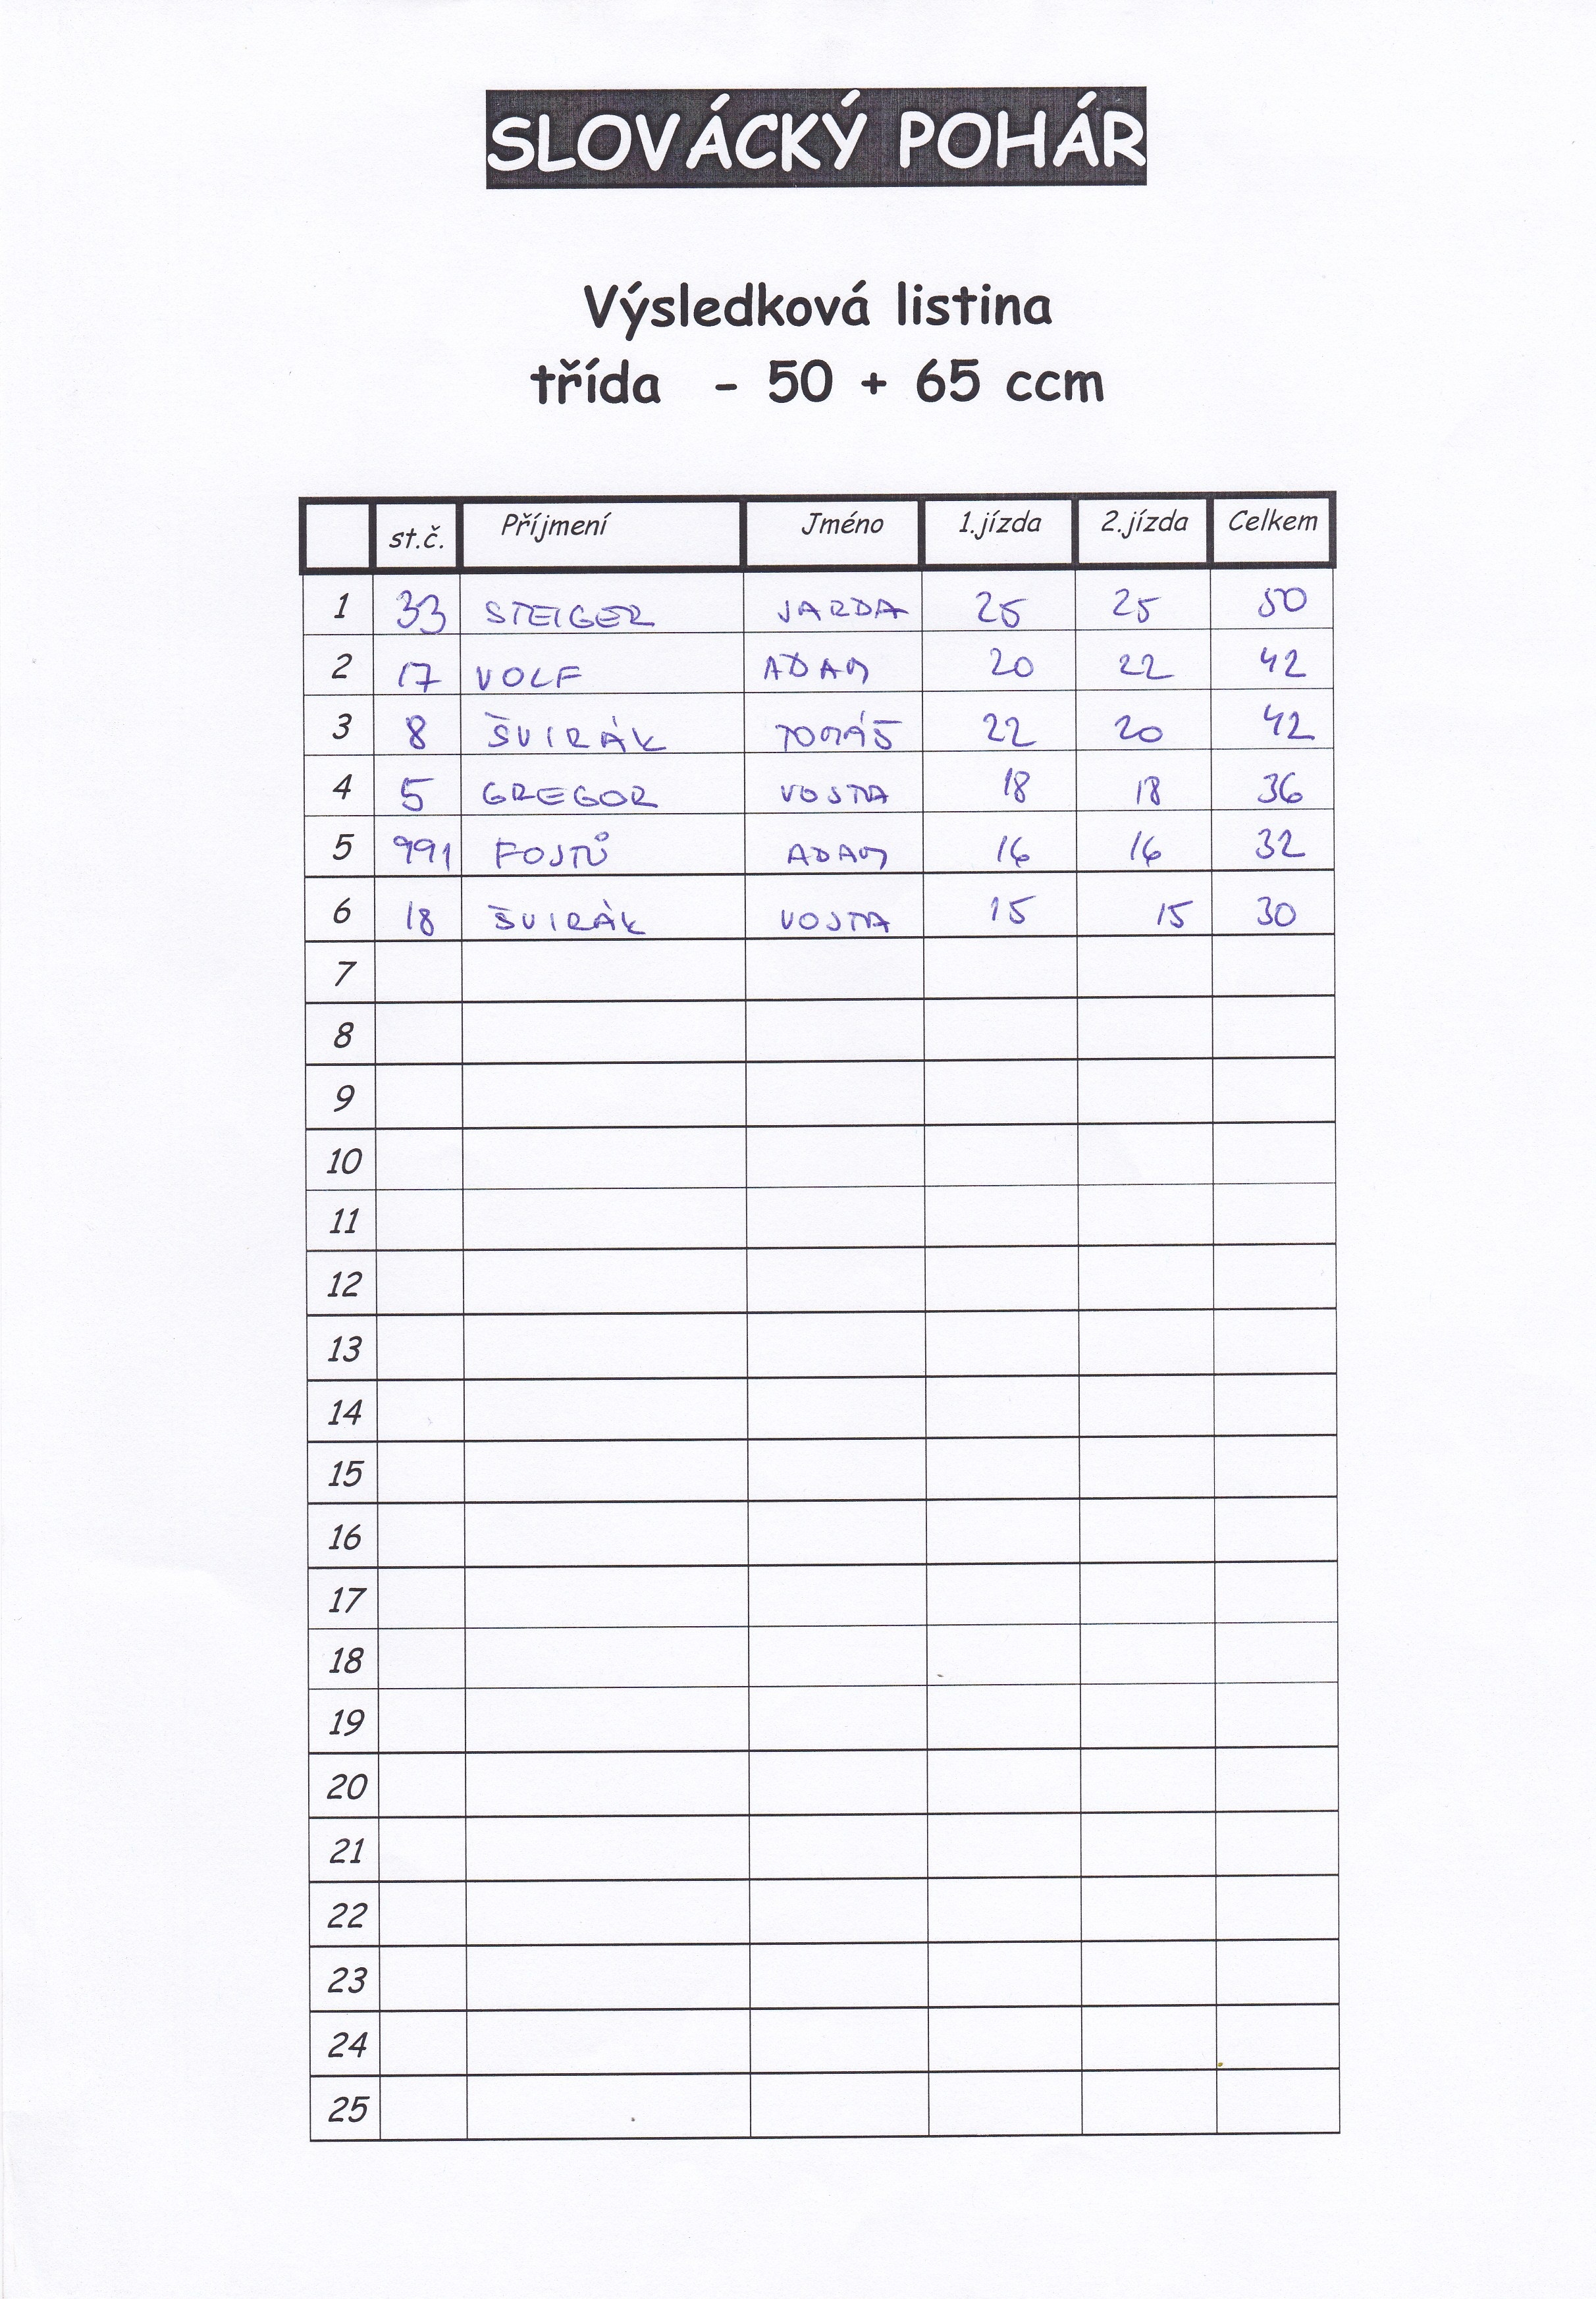 SLOVÁCKÝ POHÁR
Výsledková listina
třída - 50 + 65 ccm
st.č. Příjmení Jméno 1.jízda 2.jízda Celkem
1 33 STEIGER JARDA 25 25 50
2 17 VOLF ADAM 20 22 42
3 8 ŠVIRÁK TOMÁŠ 22 20 42
4 5 GREGOR VOJTA 18 18 36
5 991 FOJTŮ ADAM 16 16 32
6 18 ŠVIRÁK VOJTA 15 15 30
7
8
9
10
11
12
13
14
15
16
17
18
19
20
21
22
23
24
25